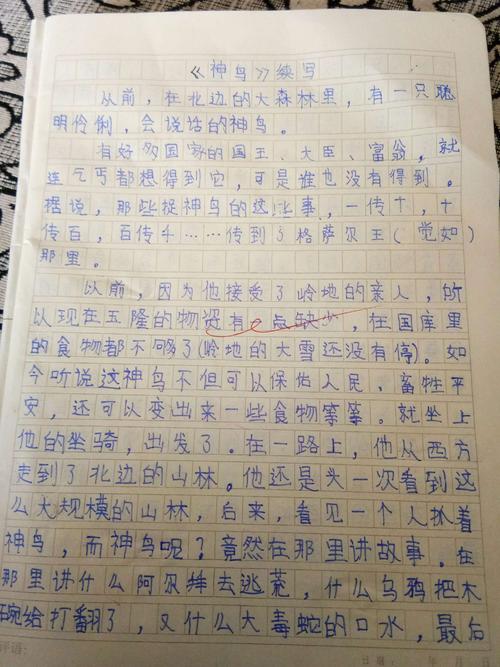 《神鸟》续写
从前,在北边的大森林里,有一只聪
明伶俐,会说话的神鸟。
有好多国家的国王、大臣、富翁,就
连乞丐都想得到它,可是谁也没有得到。
据说,那些捉神鸟的这些事,一传十,十
传百,百传千……传到了格萨尔王(觉如)
那里。
以前,因为他接受了岭地的亲人,所
以现在玉隆的物资有一点缺少,在国库里
的食物都不够了(岭地的大雪还没有停)。如
今听说这神鸟不但可以保佑人民,畜牲平
安,还可以变出来一些食物等等。就坐上
他的坐骑,出发了。在一路上,他从西方
走到了北边的山林。他还是头一次看到这
么大规模的山林,后来,看见一个人扒着
神鸟,而神鸟呢?竟然在那里讲故事。在
那里讲什么阿尔拜去逃荒,什么乌鸦把木
碗给打翻了,又什么大毒蛇的口水,最后
评语:
日期: